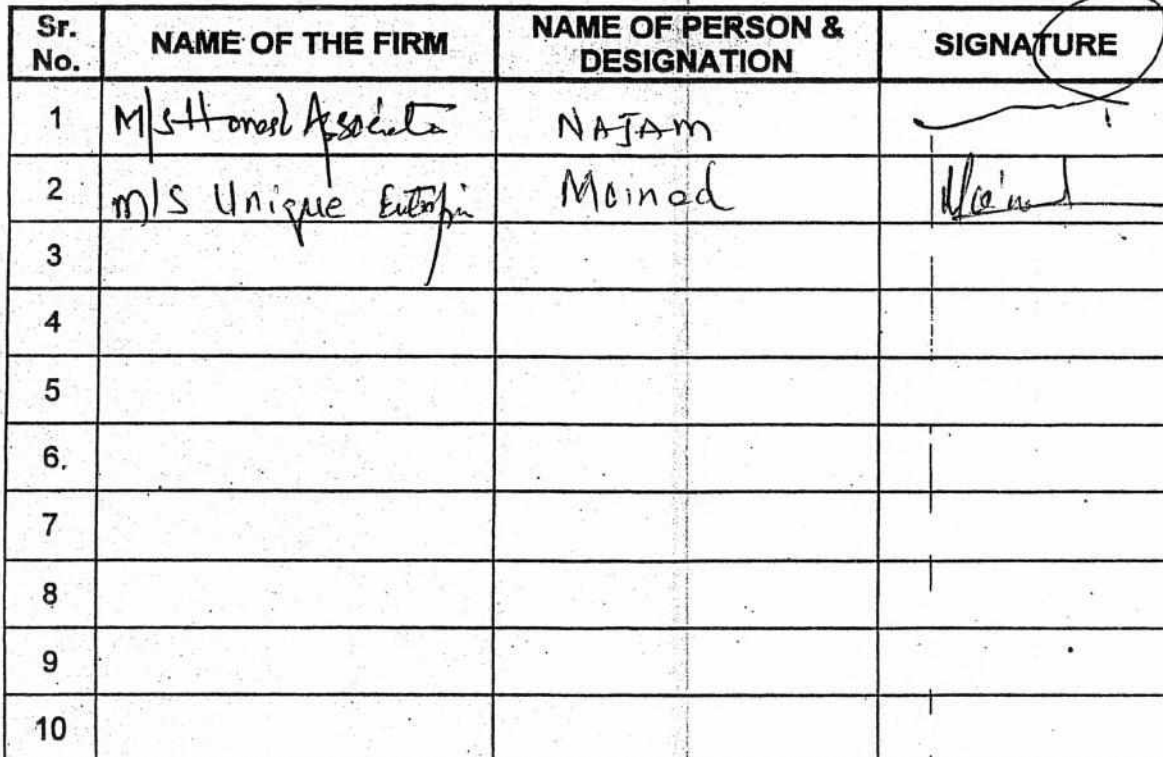 Sr. No. NAME OF THE FIRM NAME OF PERSON & DESIGNATION SIGNATURE
1 M/s Honest Associate NAJAM
2 M/S Unique Moinod
3
4
5
6.
7
8
9
10